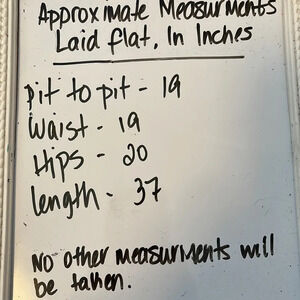 Approximate Measurments
Laid flat, In Inches
pit to pit - 19
Waist - 19
Hips - 20
length - 37
No other measurments will
be taken.